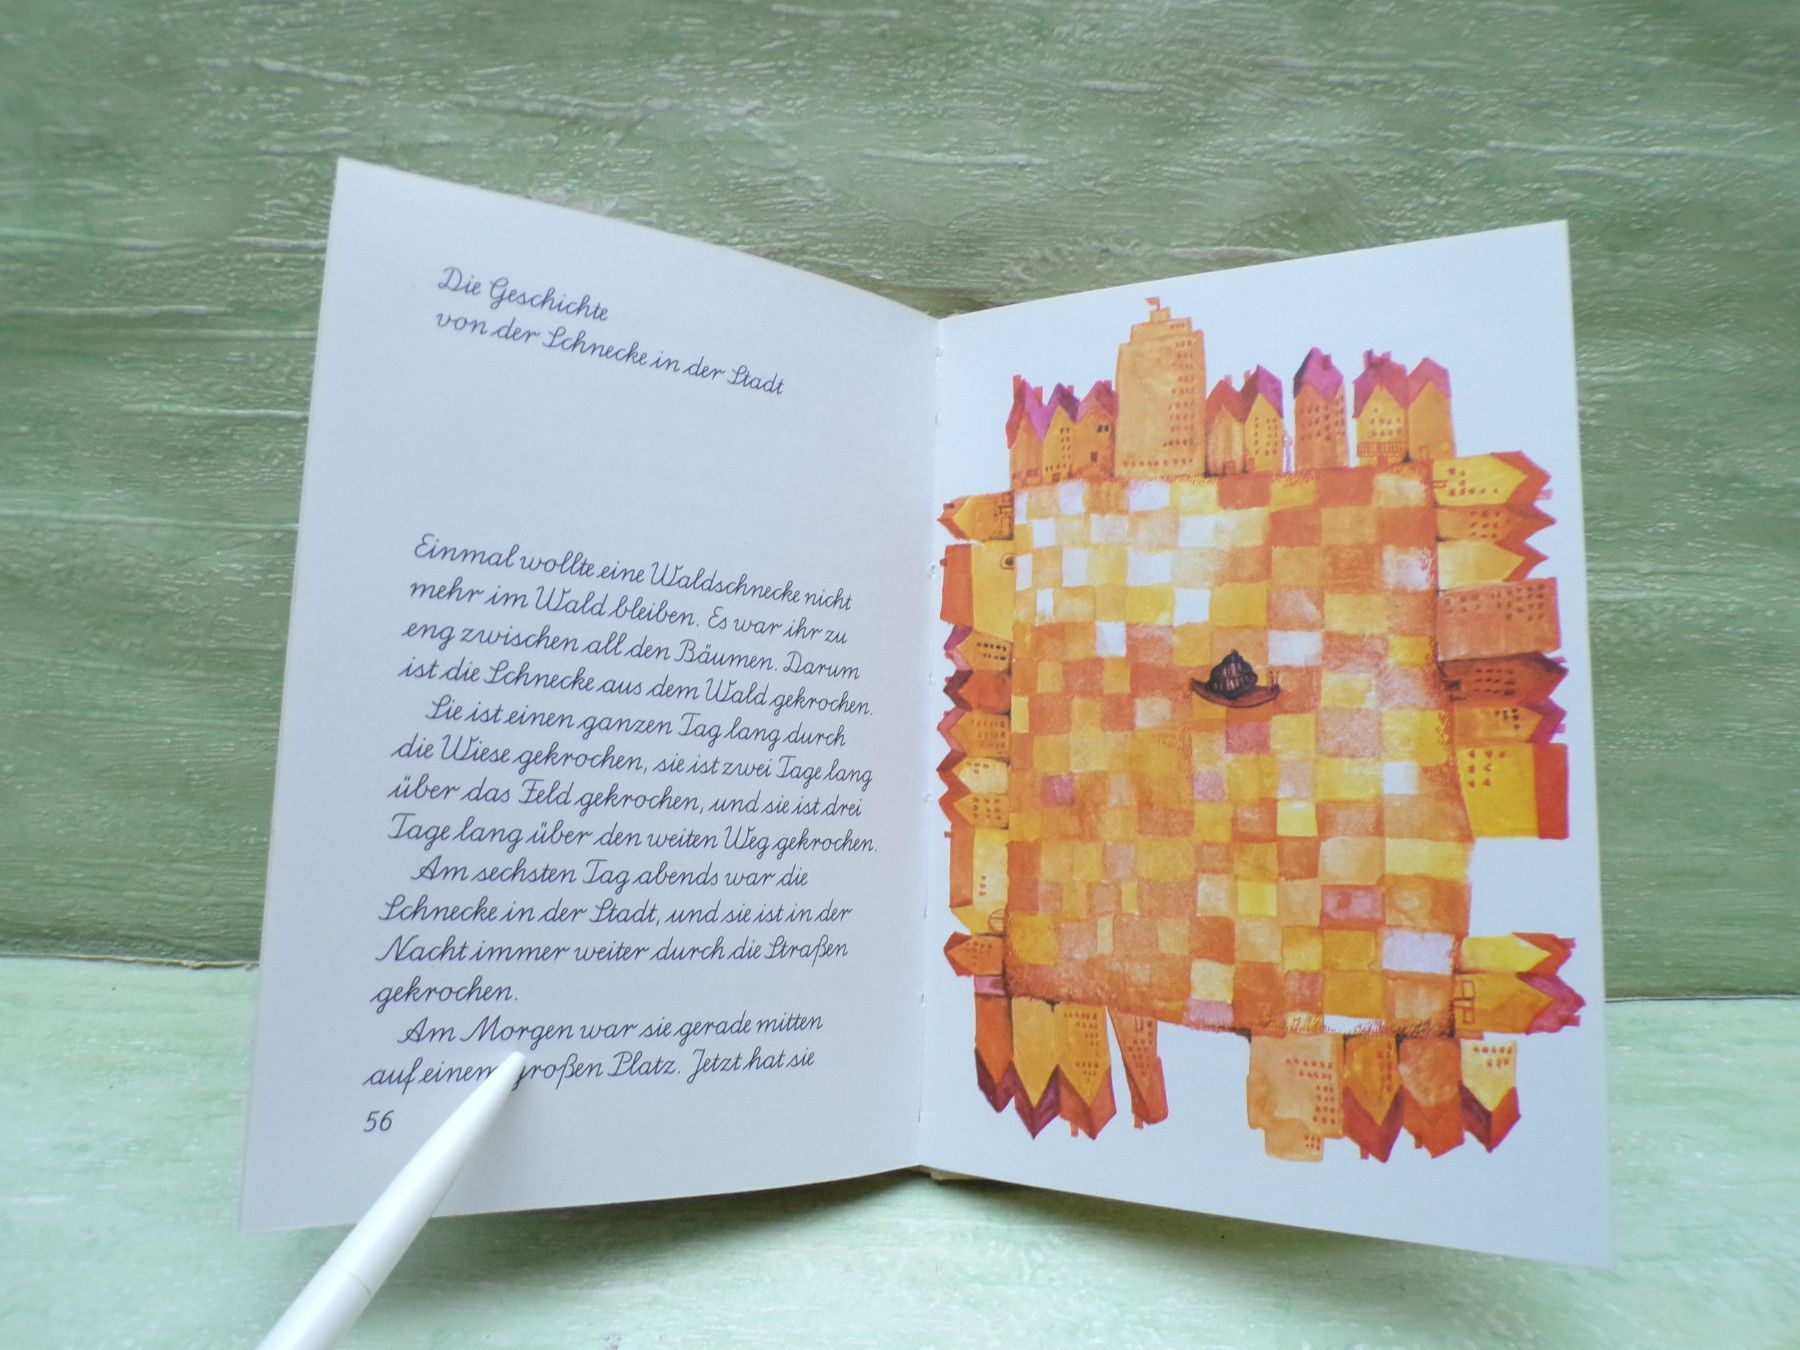 Die Geschichte
von der Schnecke in der Stadt
Einmal wollte eine Waldschnecke nicht
mehr im Wald bleiben. Es war ihr zu
eng zwischen all den Bäumen. Darum
ist die Schnecke aus dem Wald gekrochen.
Sie ist einen ganzen Tag lang durch
die Wiese gekrochen, sie ist zwei Tage lang
über das Feld gekrochen, und sie ist drei
Tage lang über den weiten Weg gekrochen.
Am sechsten Tag abends war die
Schnecke in der Stadt, und sie ist in der
Nacht immer weiter durch die Straßen
gekrochen.
Am Morgen war sie gerade mitten
auf einem großen Platz. Jetzt hat sie
56